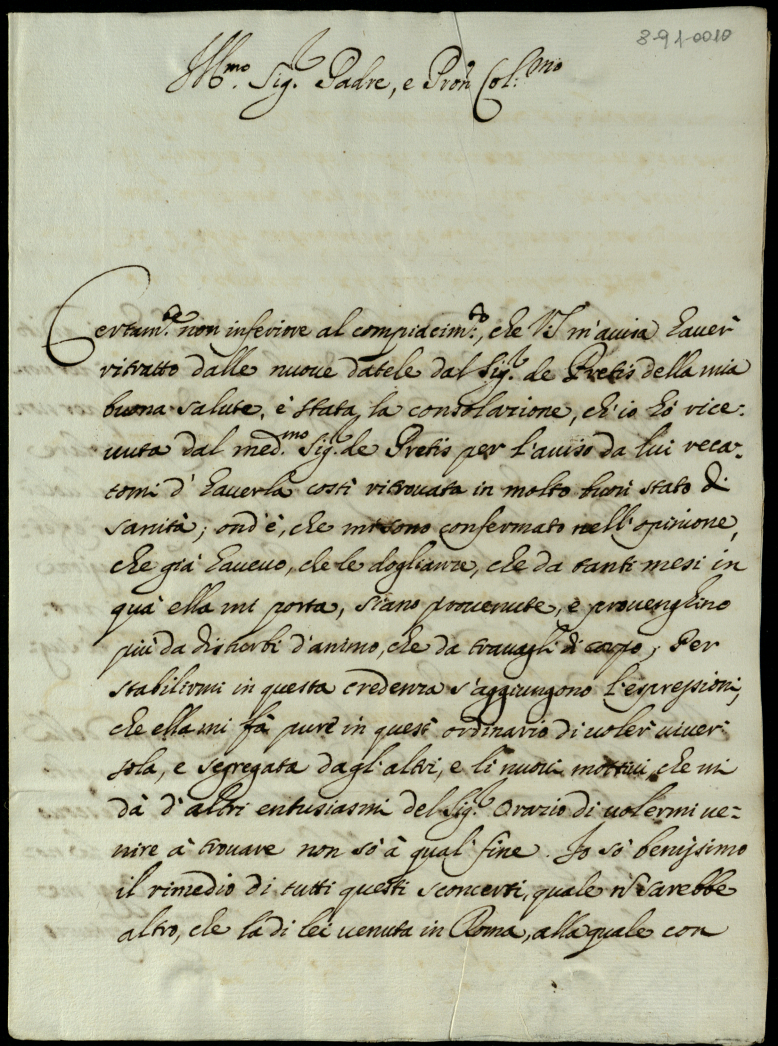 8-91-0010
Ill.mo Sig.r Padre, e Pron Col.mo
Certam.te non inferiore al compiacim.to, che VS m'avisa haver
ritratto dalle nuove datele dal Sig.r de Pretis della mia
buona salute, è stata la consolazione, ch'io hò rice-
vuta dal med.mo Sig.r de Pretis per l'aviso da lui reca-
tomi d'haverla costì ritrovata in molto buon stato di
sanità; ond'è, che mi sono confermato nell'opinione,
che già havevo, che le doglianze, che da tanti mesi in
quà ella mi porta, siano provenute, e provenghino
più da disturbi d'animo, che da travagli di corpo; Per
stabilirmi in questa credenza s'aggiungono l'espressioni,
che ella mi fà pure in quest'ordinario di voler viver
sola, e segregata dagl'altri, e li nuovi mottivi, che mi
dà d'altri entusiasmi del Sig.r Orazio di volermi ve-
nire à trovare non sò à qual fine. Io sò benissimo
il rimedio di tutti questi sconcerti, quale ñ sarebbe
altro, che la di lei venuta in Roma, alla quale con